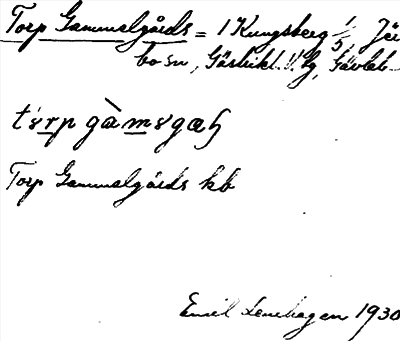 Torp Gammelgårds = 1 Kungsberg 1/5, Jär
bo sn, Gästrikl. V. hg, Gävleb
Torp Gammelgårds kb
Emil Lenehagen 1930